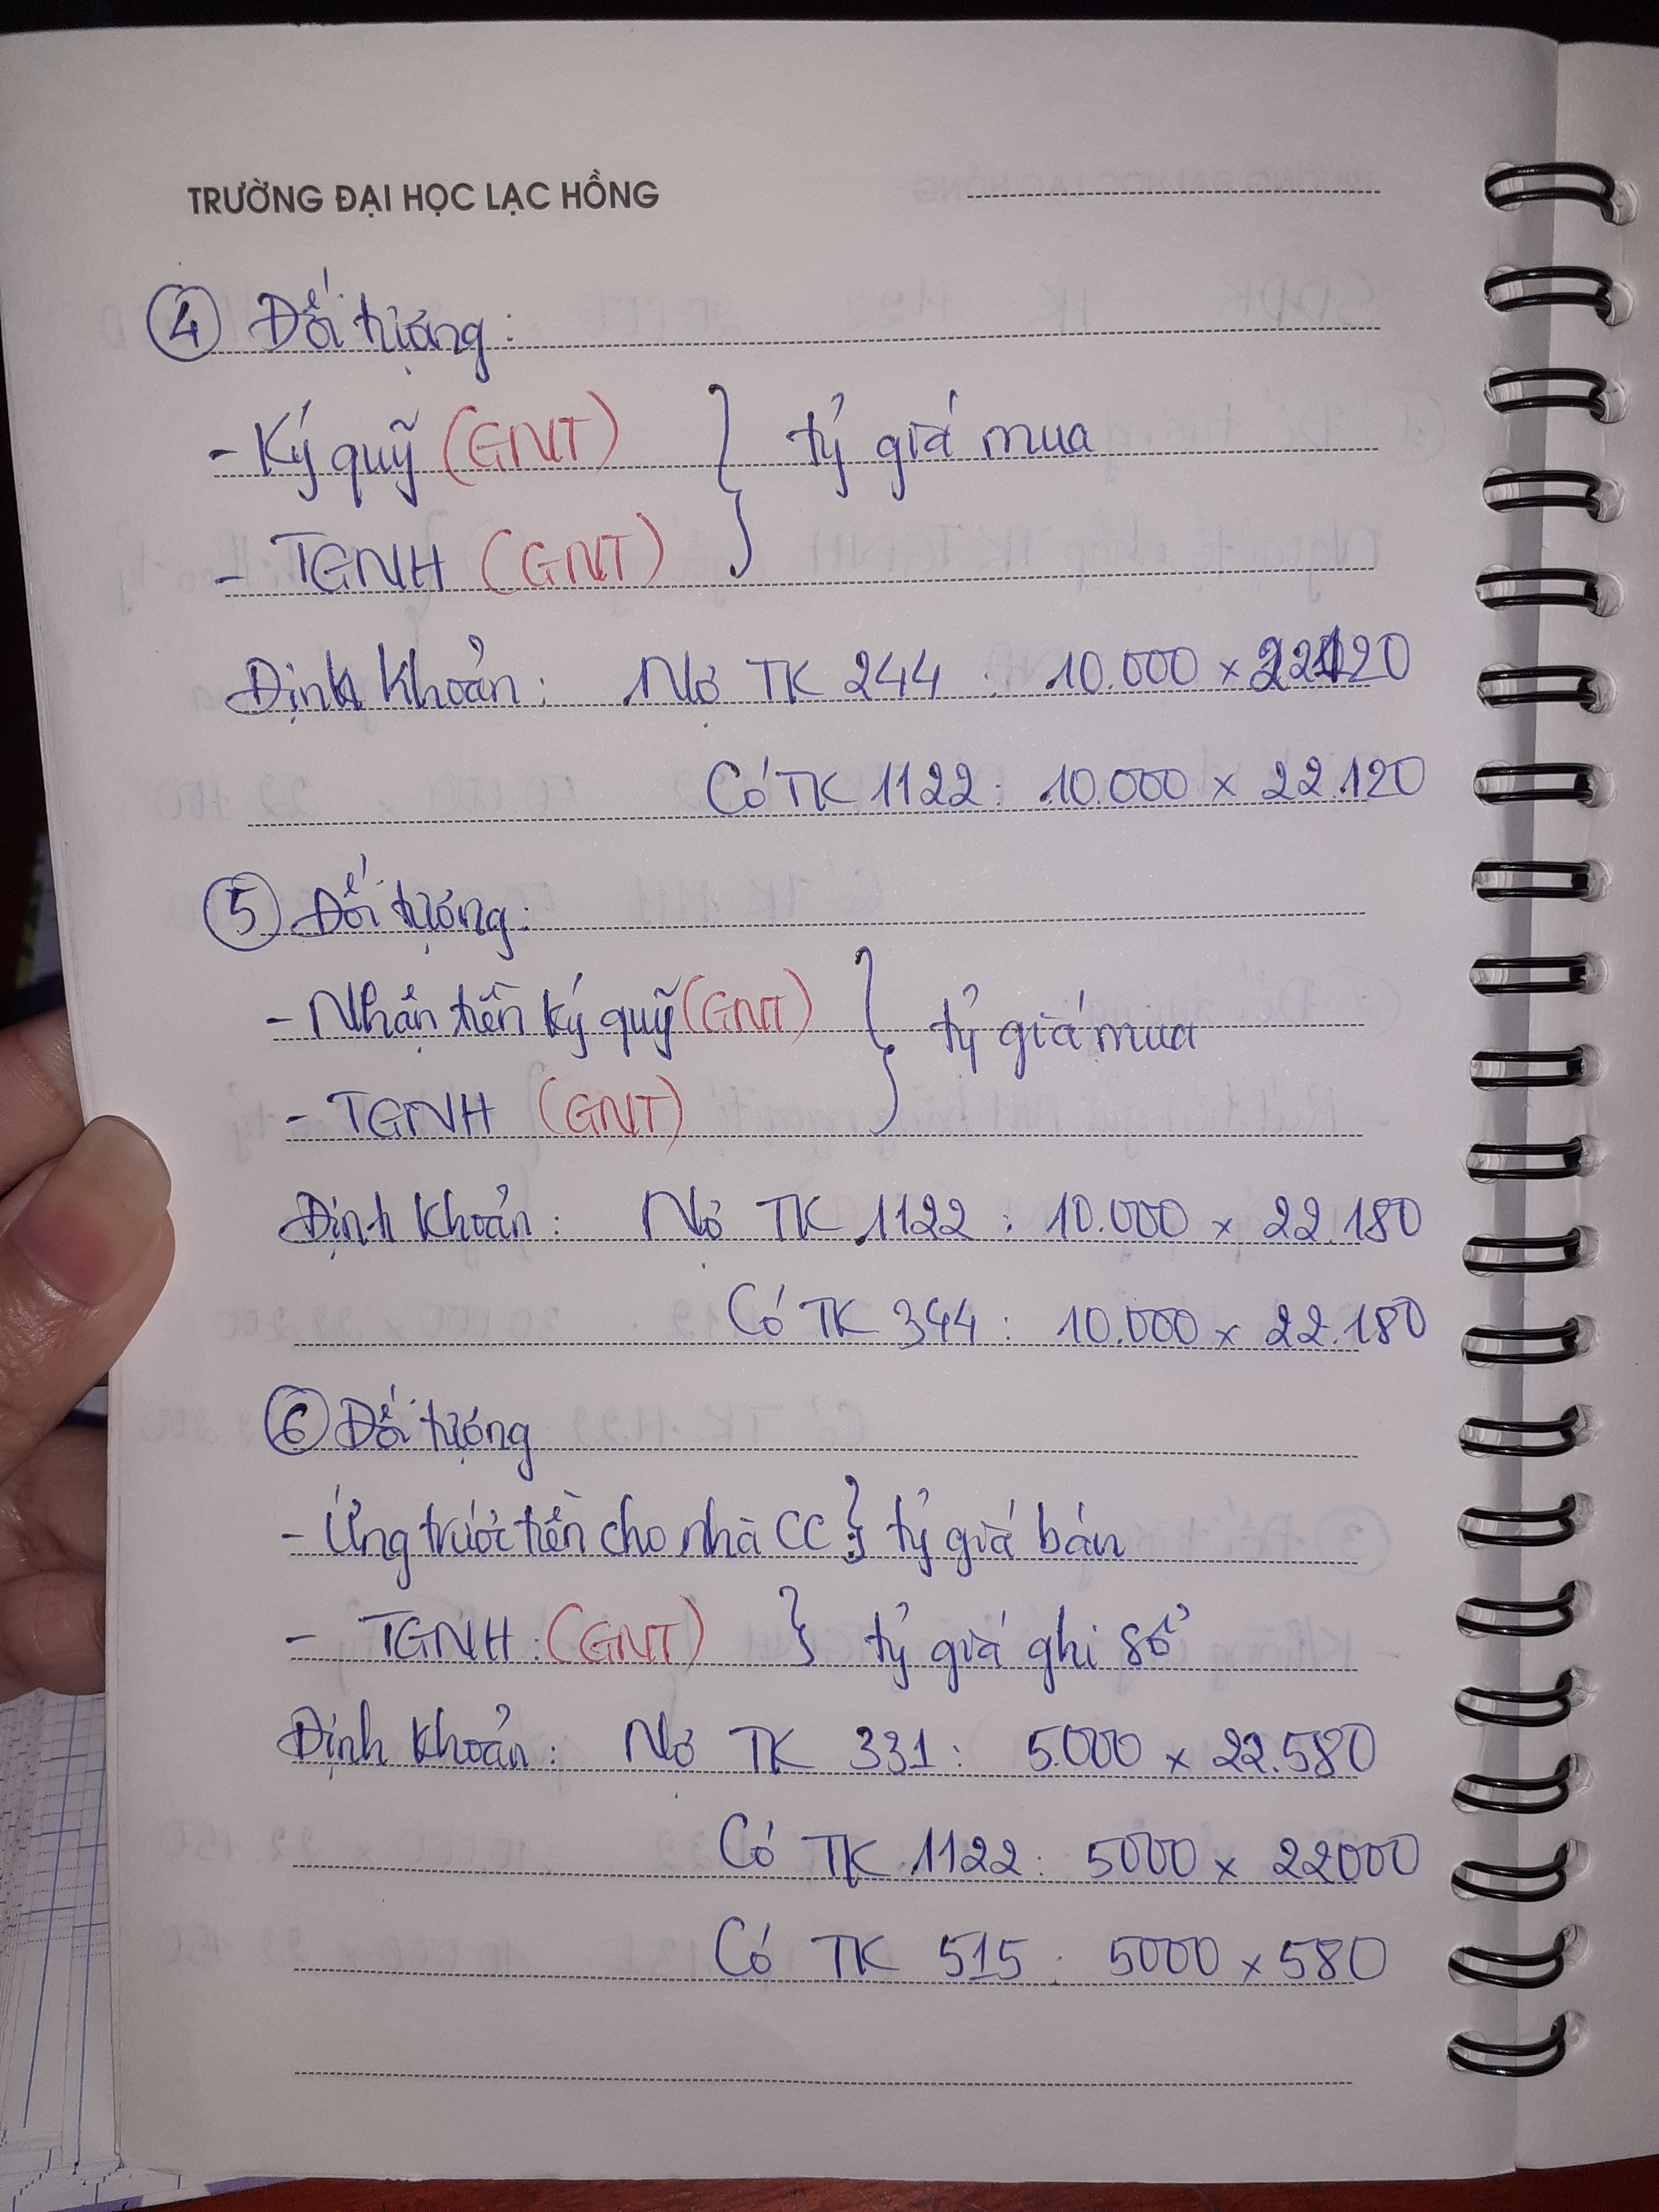 TRƯỜNG ĐẠI HỌC LẠC HỒNG
④ Đối tượng:
- Ký quỹ (GNT) } tỷ giá mua
- TGNH (GNT)
Định khoản: Nợ TK 244 : 10.000 x 22120
Có TK 1122: 10.000 x 22.120
⑤ Đối tượng:
- Nhận tiền ký quỹ (GNT) } tỷ giá mua
- TGNH (GNT)
Định khoản: Nợ TK 1122 : 10.000 x 22.180
Có TK 344 : 10.000 x 22.180
⑥ Đối tượng
- Ứng trước tiền cho nhà CC } tỷ giá bán
- TGNH: (GNT) } tỷ giá ghi sổ
Định khoản: Nợ TK 331: 5.000 x 22.580
Có TK 1122: 5000 x 22000
Có TK 515: 5000 x 580